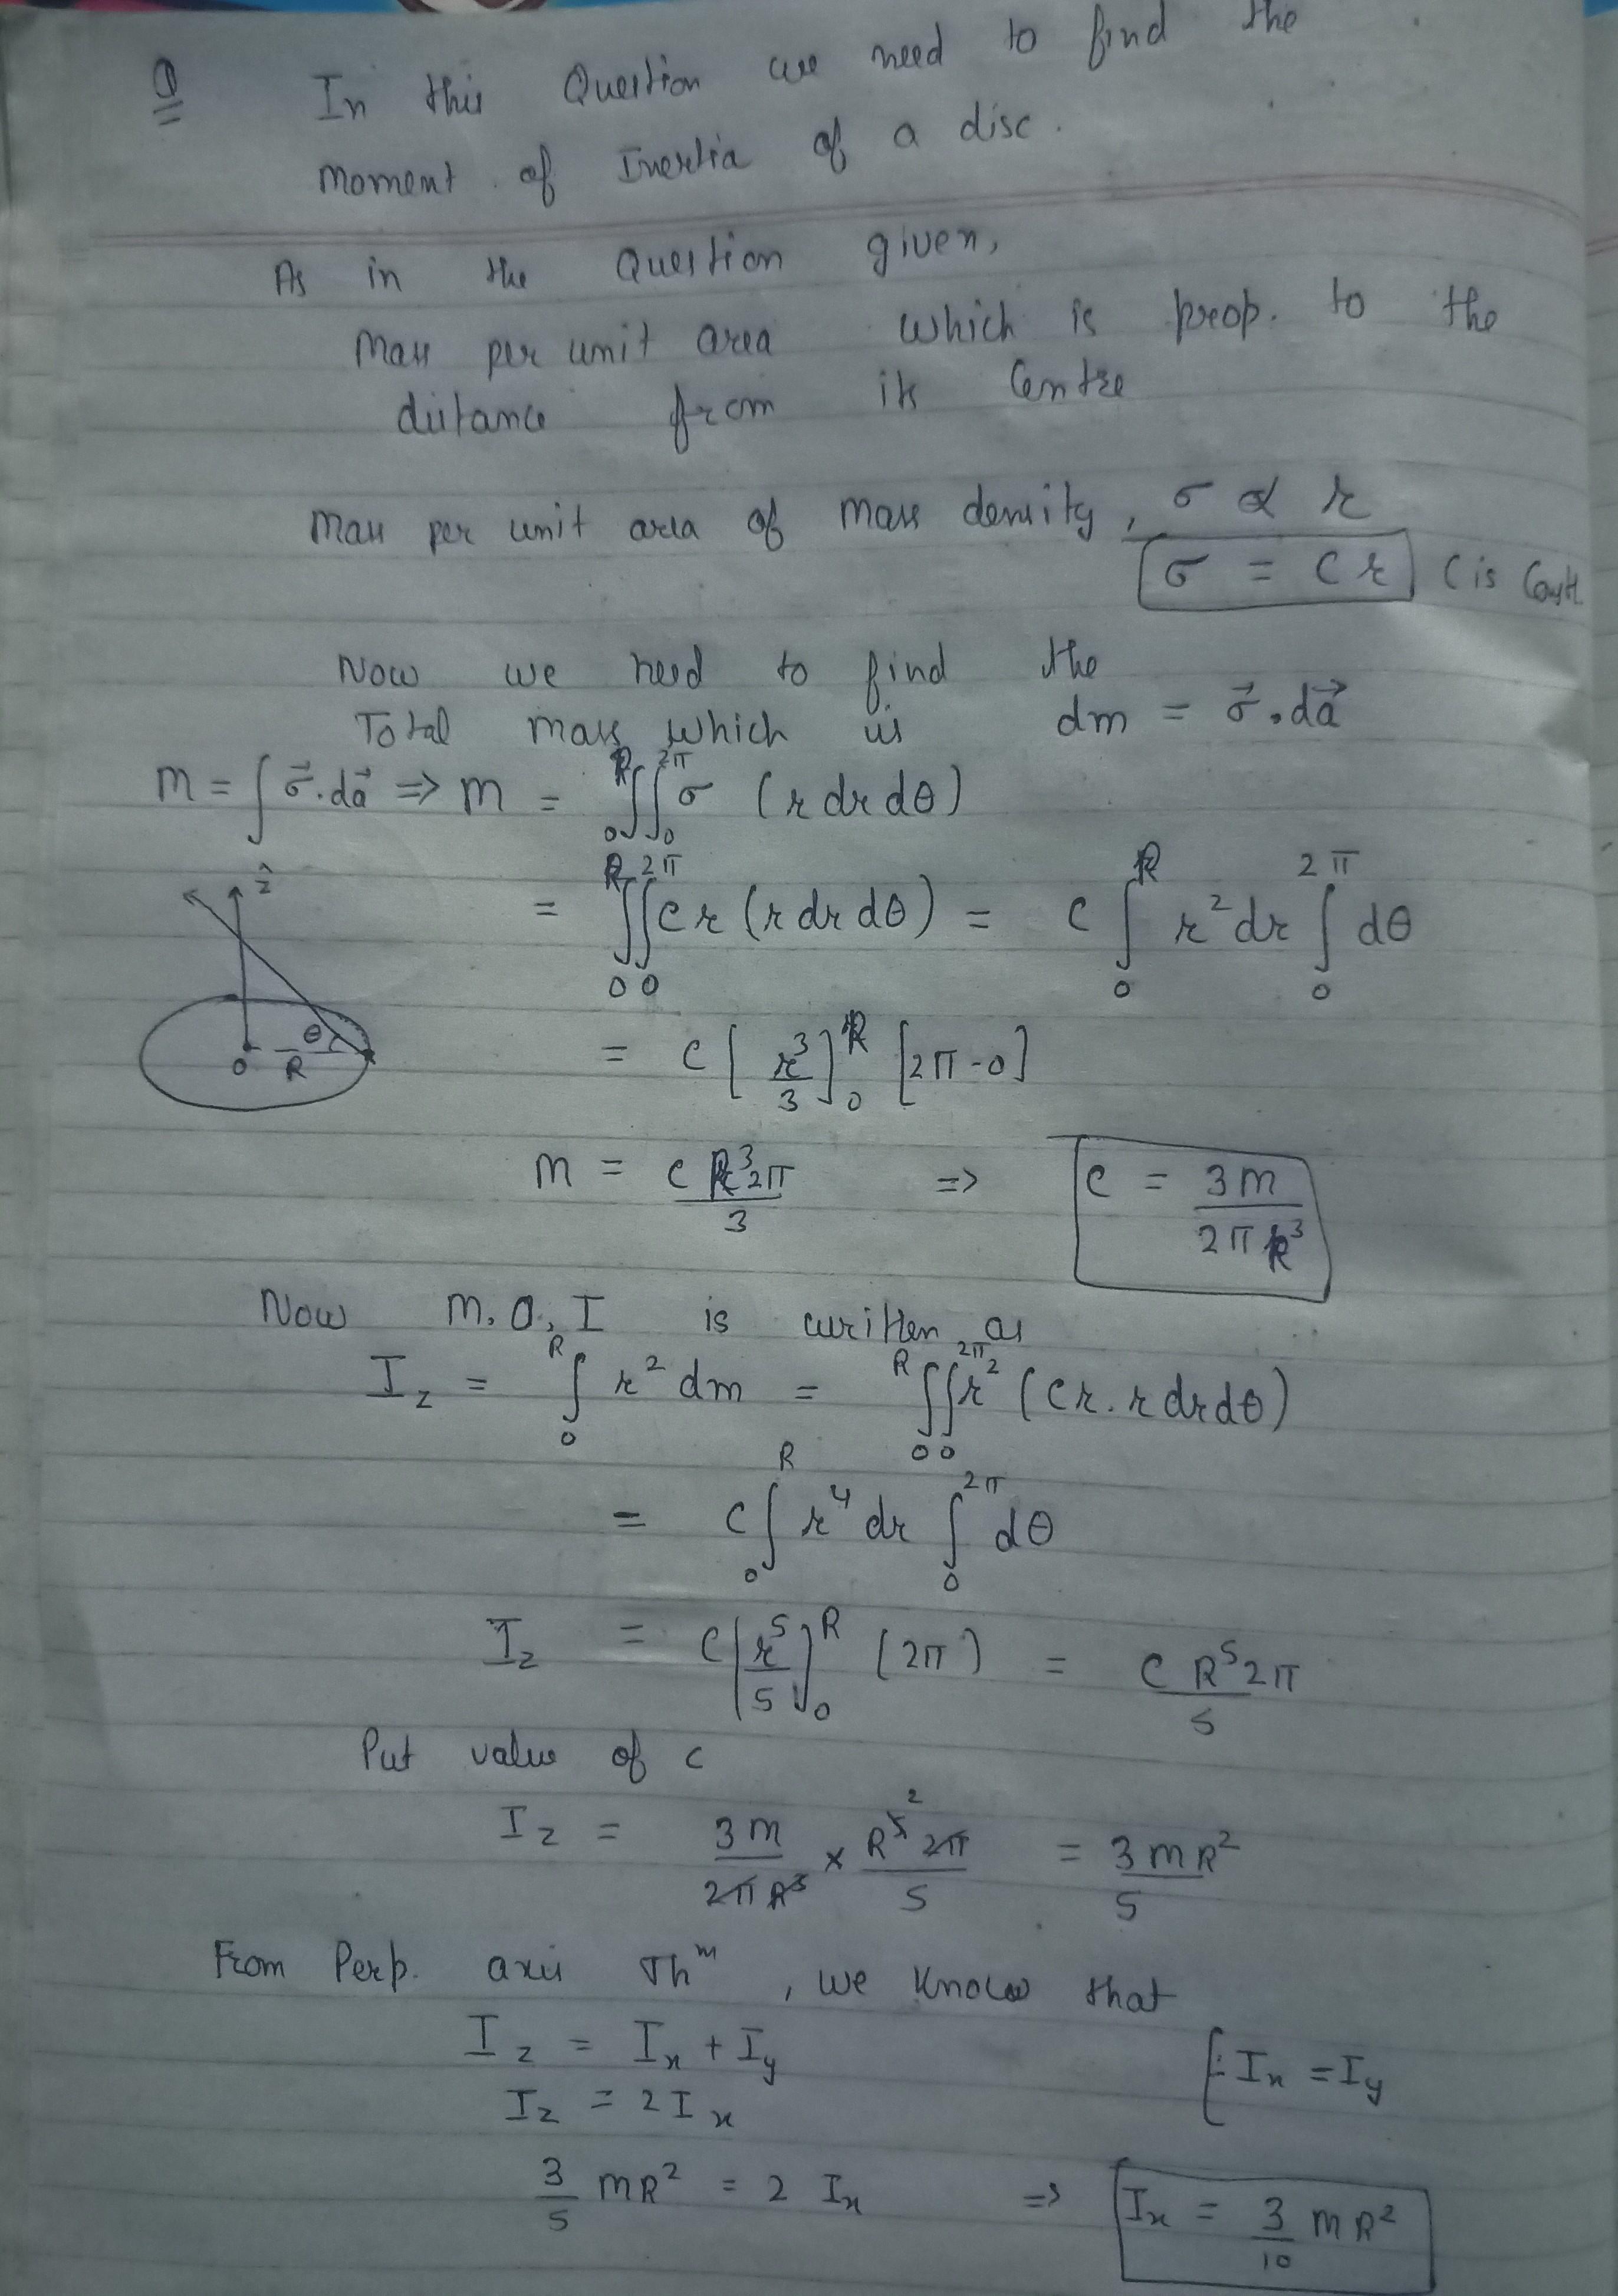 Q In this Question we need to find the
moment of Inertia of a disc.
As in the Question given,
Mass per unit area which is prop. to the
distance from its Centre
Mass per unit area of mass density, σ ∝ r
σ = Cr C is Const.
Now we need to find the
Total mass which is dm = σ⃗.da⃗
m = ∫σ⃗.da⃗ => m = ∫₀ᴿ∫₀²π σ (r dr dθ)
= ∫₀ᴿ∫₀²π cr (r dr dθ) = c ∫₀ᴿ r² dr ∫₀²π dθ
ẑ
θ
O R
= c [r³/3]₀ᴿ [2π-0]
m = c R³ 2π / 3 => c = 3m / 2πR³
Now M.O.I is written as
I_z = ∫₀ᴿ r² dm = ∫₀ᴿ∫₀²π r² (cr. r dr dθ)
= c ∫₀ᴿ r⁴ dr ∫₀²π dθ
I_z = c [r⁵/5]₀ᴿ (2π) = c R⁵ 2π / 5
Put value of c
I_z = 3m / 2πR³ × R⁵ ² 2π / 5 = 3mR² / 5
From Perp. axis Thᵐ, we know that
I_z = I_x + I_y [∵ I_x = I_y
I_z = 2 I_x
3/5 mR² = 2 I_x => I_x = 3/10 mR²